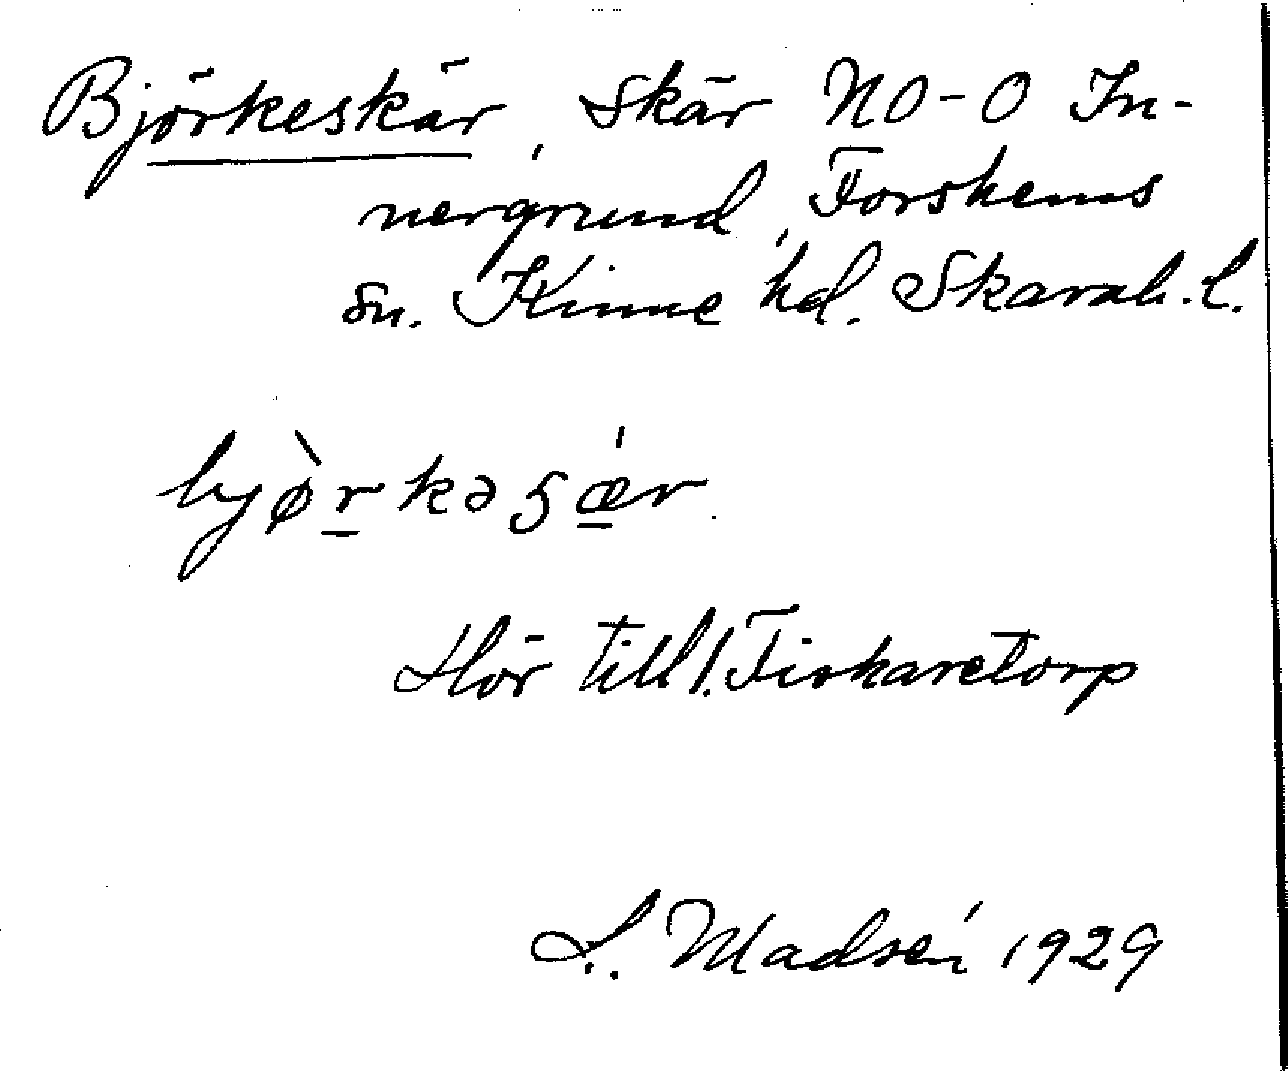 Björkeskär, skär NO-O In-
nergrund, Forshems
sn. Kinne hd. Skarab. l.
bjø̀r̲kəʂǽ̲r
Hör till l. Fiskaretorp
L. Madsén 1929